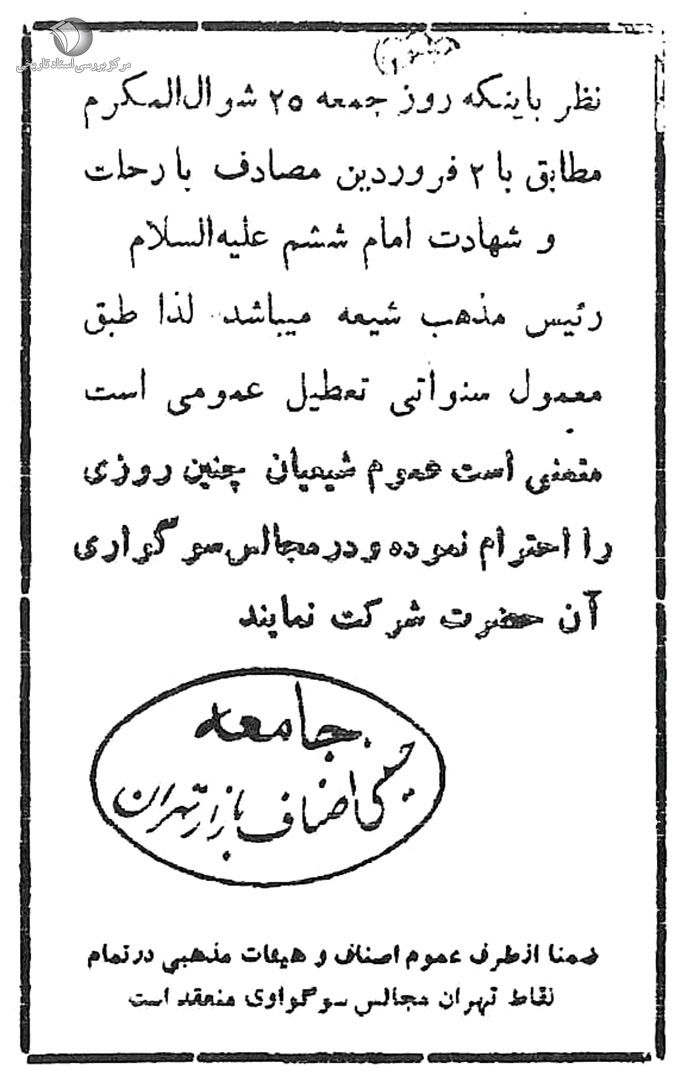 مرکز بررسی اسناد تاریخی
نظر باینکه روز جمعه ۲۵ شوال‌المکرم
مطابق با ۲ فروردین مصادف با رحلت
و شهادت امام ششم علیه‌السلام
رئیس مذهب شیعه میباشد. لذا طبق
معمول سنواتی تعطیل عمومی است
متمنی است عموم شیعیان چنین روزی
را احترام نموده و در مجالس سوگواری
آن حضرت شرکت نمایند
جامعه
اصناف بازار تهران
ضمنا از طرف عموم اصناف و هیئات مذهبی در تمام
نقاط تهران مجالس سوگواری منعقد است